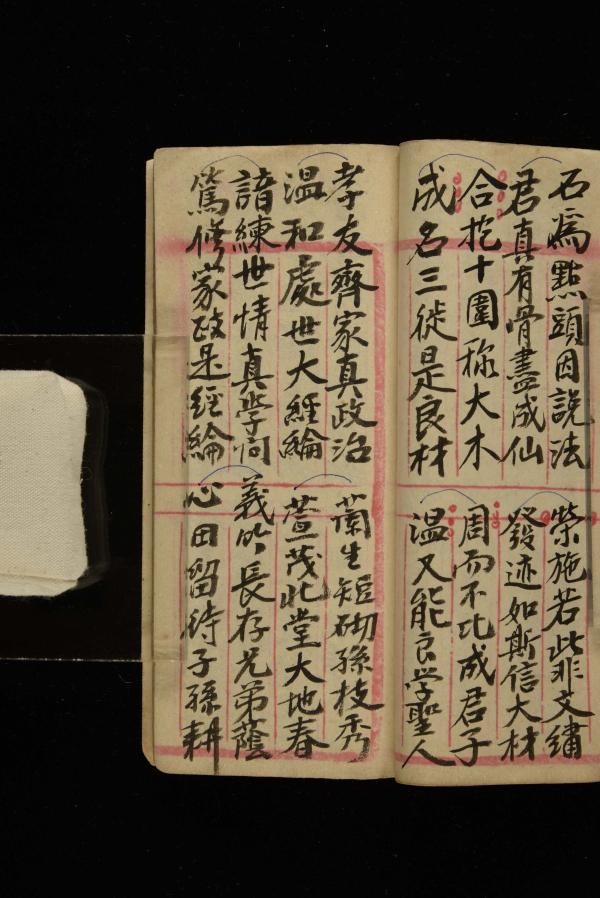 石焉點頭因說法
君真有骨盡成仙
合抱十圍称大木
成名三徙是良材
榮施若此非文繡
發迹如斯信大材
周而不比成君子
温又能良学聖人
孝友齊家真政治
温和處世大經綸
諳練世情真学问
篤修家政是經綸
蘭生短砌孫枝秀
萱茂北堂大地春
義竹長存兄弟蔭
心田留待子孫耕